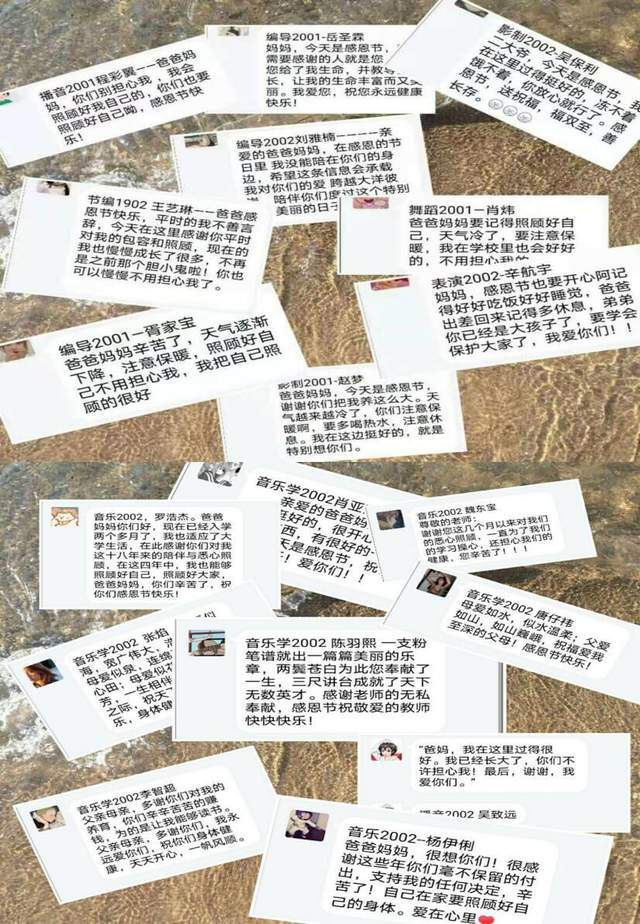 播音2001程彩翼--爸爸
妈妈，你们别担心我，我会
照顾好我自己的，你们也要
照顾好自己呦，感恩节快
乐！
编导2001-岳圣霖
妈妈，今天是感恩节，
需要感谢的人就是您，
您给了我生命，并教
长，让我的生命丰富而又
丽。我爱您，祝您永远健康
快乐！
影制2002-吴保利
二大爷，今天是感恩节，
在这里过得挺好的，冻不着
饿不着，你放心就行了。感
恩节，送祝福，福双至，善
长存。
编导2002刘雅楠-----亲
爱的爸爸妈妈，在感恩的节
日里 我没能陪在你们的身
边，希望这条信息会承载
我对你们的爱 跨越大洋彼
陪伴你们度过这个特别
美丽的日子
节编1902 王艺琳--爸爸感
恩节快乐，平时的我不善言
辞，今天在这里感谢你平时
对我的包容和照顾，现在的
我也慢慢成长了很多，不再
是之前那个胆小鬼啦！你也
可以慢慢不用担心我了。
舞蹈2001-肖炜
爸爸妈妈要记得照顾好自
己，天气冷了，要注意保
暖，我在学校里也会好好
的，不用担心我的
表演2002-辛航宇
妈妈，感恩节也要开心阿记
得好好吃饭好好睡觉，爸爸
出差回来记得多休息，弟弟
你已经是大孩子了，要学会
保护大家了，我爱你们！！
编导2001-胥家宝
爸爸妈妈辛苦了，天气逐渐
下降，注意保暖，照顾好自
己不用担心我，我把自己照
顾的很好
影制2001-赵梦
爸爸妈妈，今天是感恩节，
谢谢你们把我养这么大。天
气越来越冷了，你们注意保
暖啊，要多喝热水，注意休
息。我在这边挺好的，就是
特别想你们。
音乐学2002，罗浩杰。爸爸
妈妈你们好，现在已经入学
两个多月了，我也适应了大
学生活，在此感谢你们对我
这十八年来的陪伴与悉心照
顾，在这四年中，我也能够
照顾好自己，照顾好大家，
爸爸妈妈，你们辛苦了，祝
你们感恩节快乐！
音乐学2002肖亚
亲爱的爸爸妈
挺好的，很开心
西，有很好的
天是感恩节，祝
乐！爱你们！
音乐2002 魏东宝
尊敬的老师：
谢谢您这几个月以来对我们
的悉心照顾，一直为了我们
的学习操心，还担心我们的
健康，您辛苦了！！！
音乐学2002 唐仔祎
母爱如水，似水温柔；父爱
如山，如山巍峨，祝福爱我
至深的父母！感恩节快乐！
音乐学2002 张焰
海，宽广伟大，
母爱似泉，连绵
心田；母爱似花
芳，一生相伴
之际，祝天
乐，身体健
音乐学2002 陈羽熙 一支粉
笔谱就出一篇篇美丽的乐
章，两鬓苍白为此您奉献了
一生，三尺讲台成就了天下
无数英才。感谢老师的无私
奉献，感恩节祝敬爱的教师
快快快乐！
“爸妈，我在这里过得很
好。我已经长大了，你们不
许担心我！最后，谢谢，我
爱你们。”
播音2002 吴致远
音乐学2002李智超
父亲母亲，多谢你们对我的
养育，你们辛辛苦苦的赚
钱，为的是让我能够读书。
父亲母亲，多谢你们，我永
远爱你们，祝你们身体健
康，天天开心，一帆风顺。
音乐2002--杨伊俐
爸爸妈妈，很想你们！很感
谢这些年你们毫不保留的付
出，支持我的任何决定，辛
苦了！自己在家要照顾好自
己的身体。爱在心里